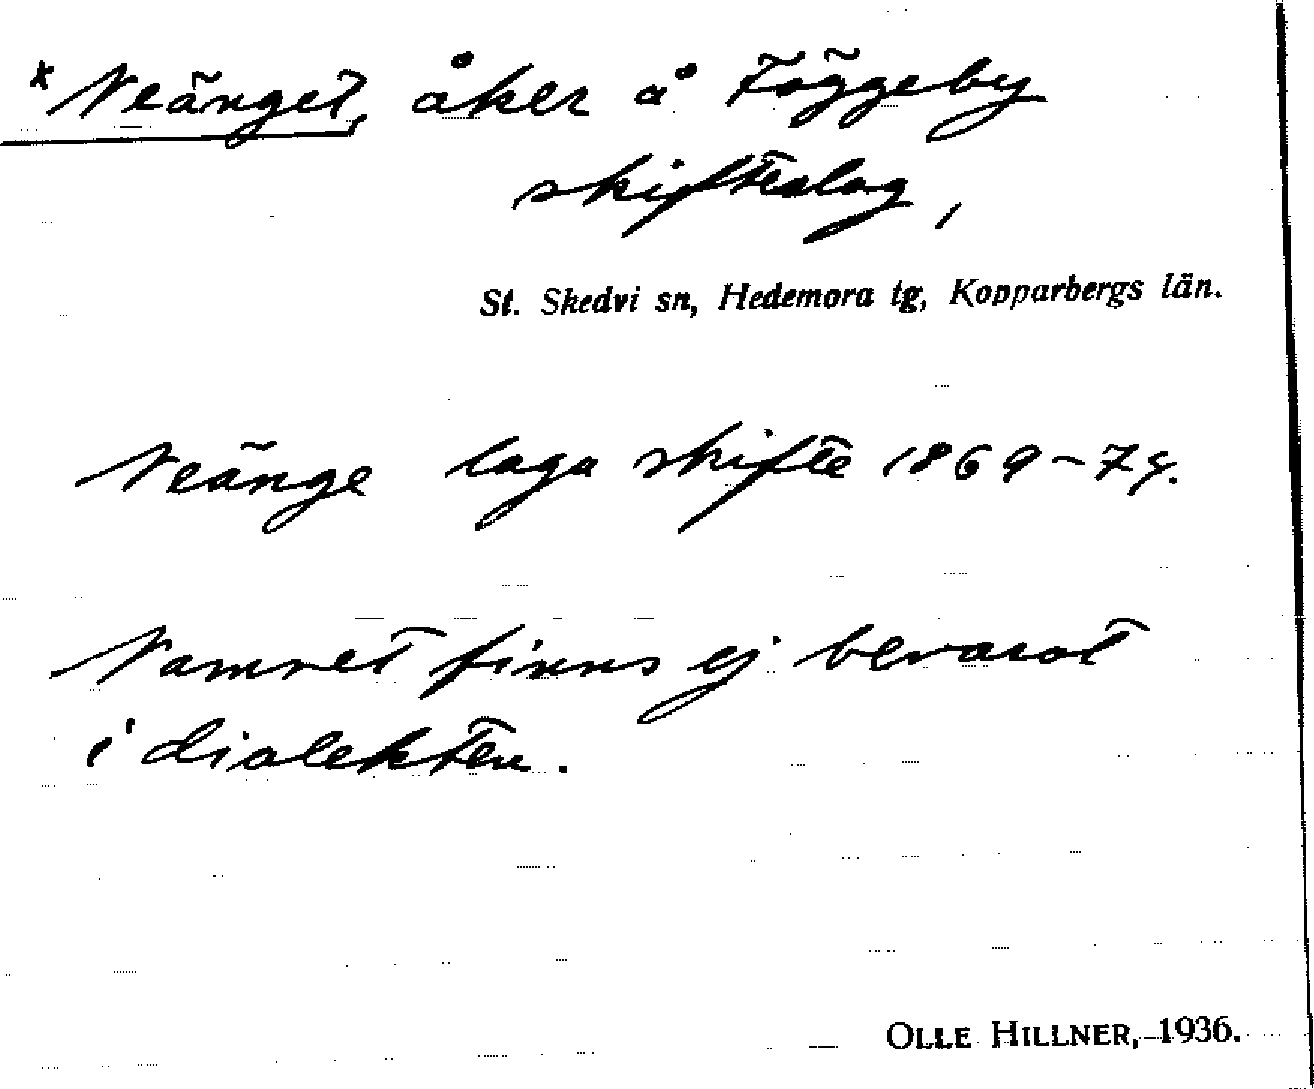 *Neänget, åker å Föggeby
skifteslag,
St. Skedvi sn, Hedemora tg, Kopparbergs län.
Neänge laga skifte 1869-74.
Namnet finns ej bevarat
i dialekten.
OLLE HILLNER, 1936.